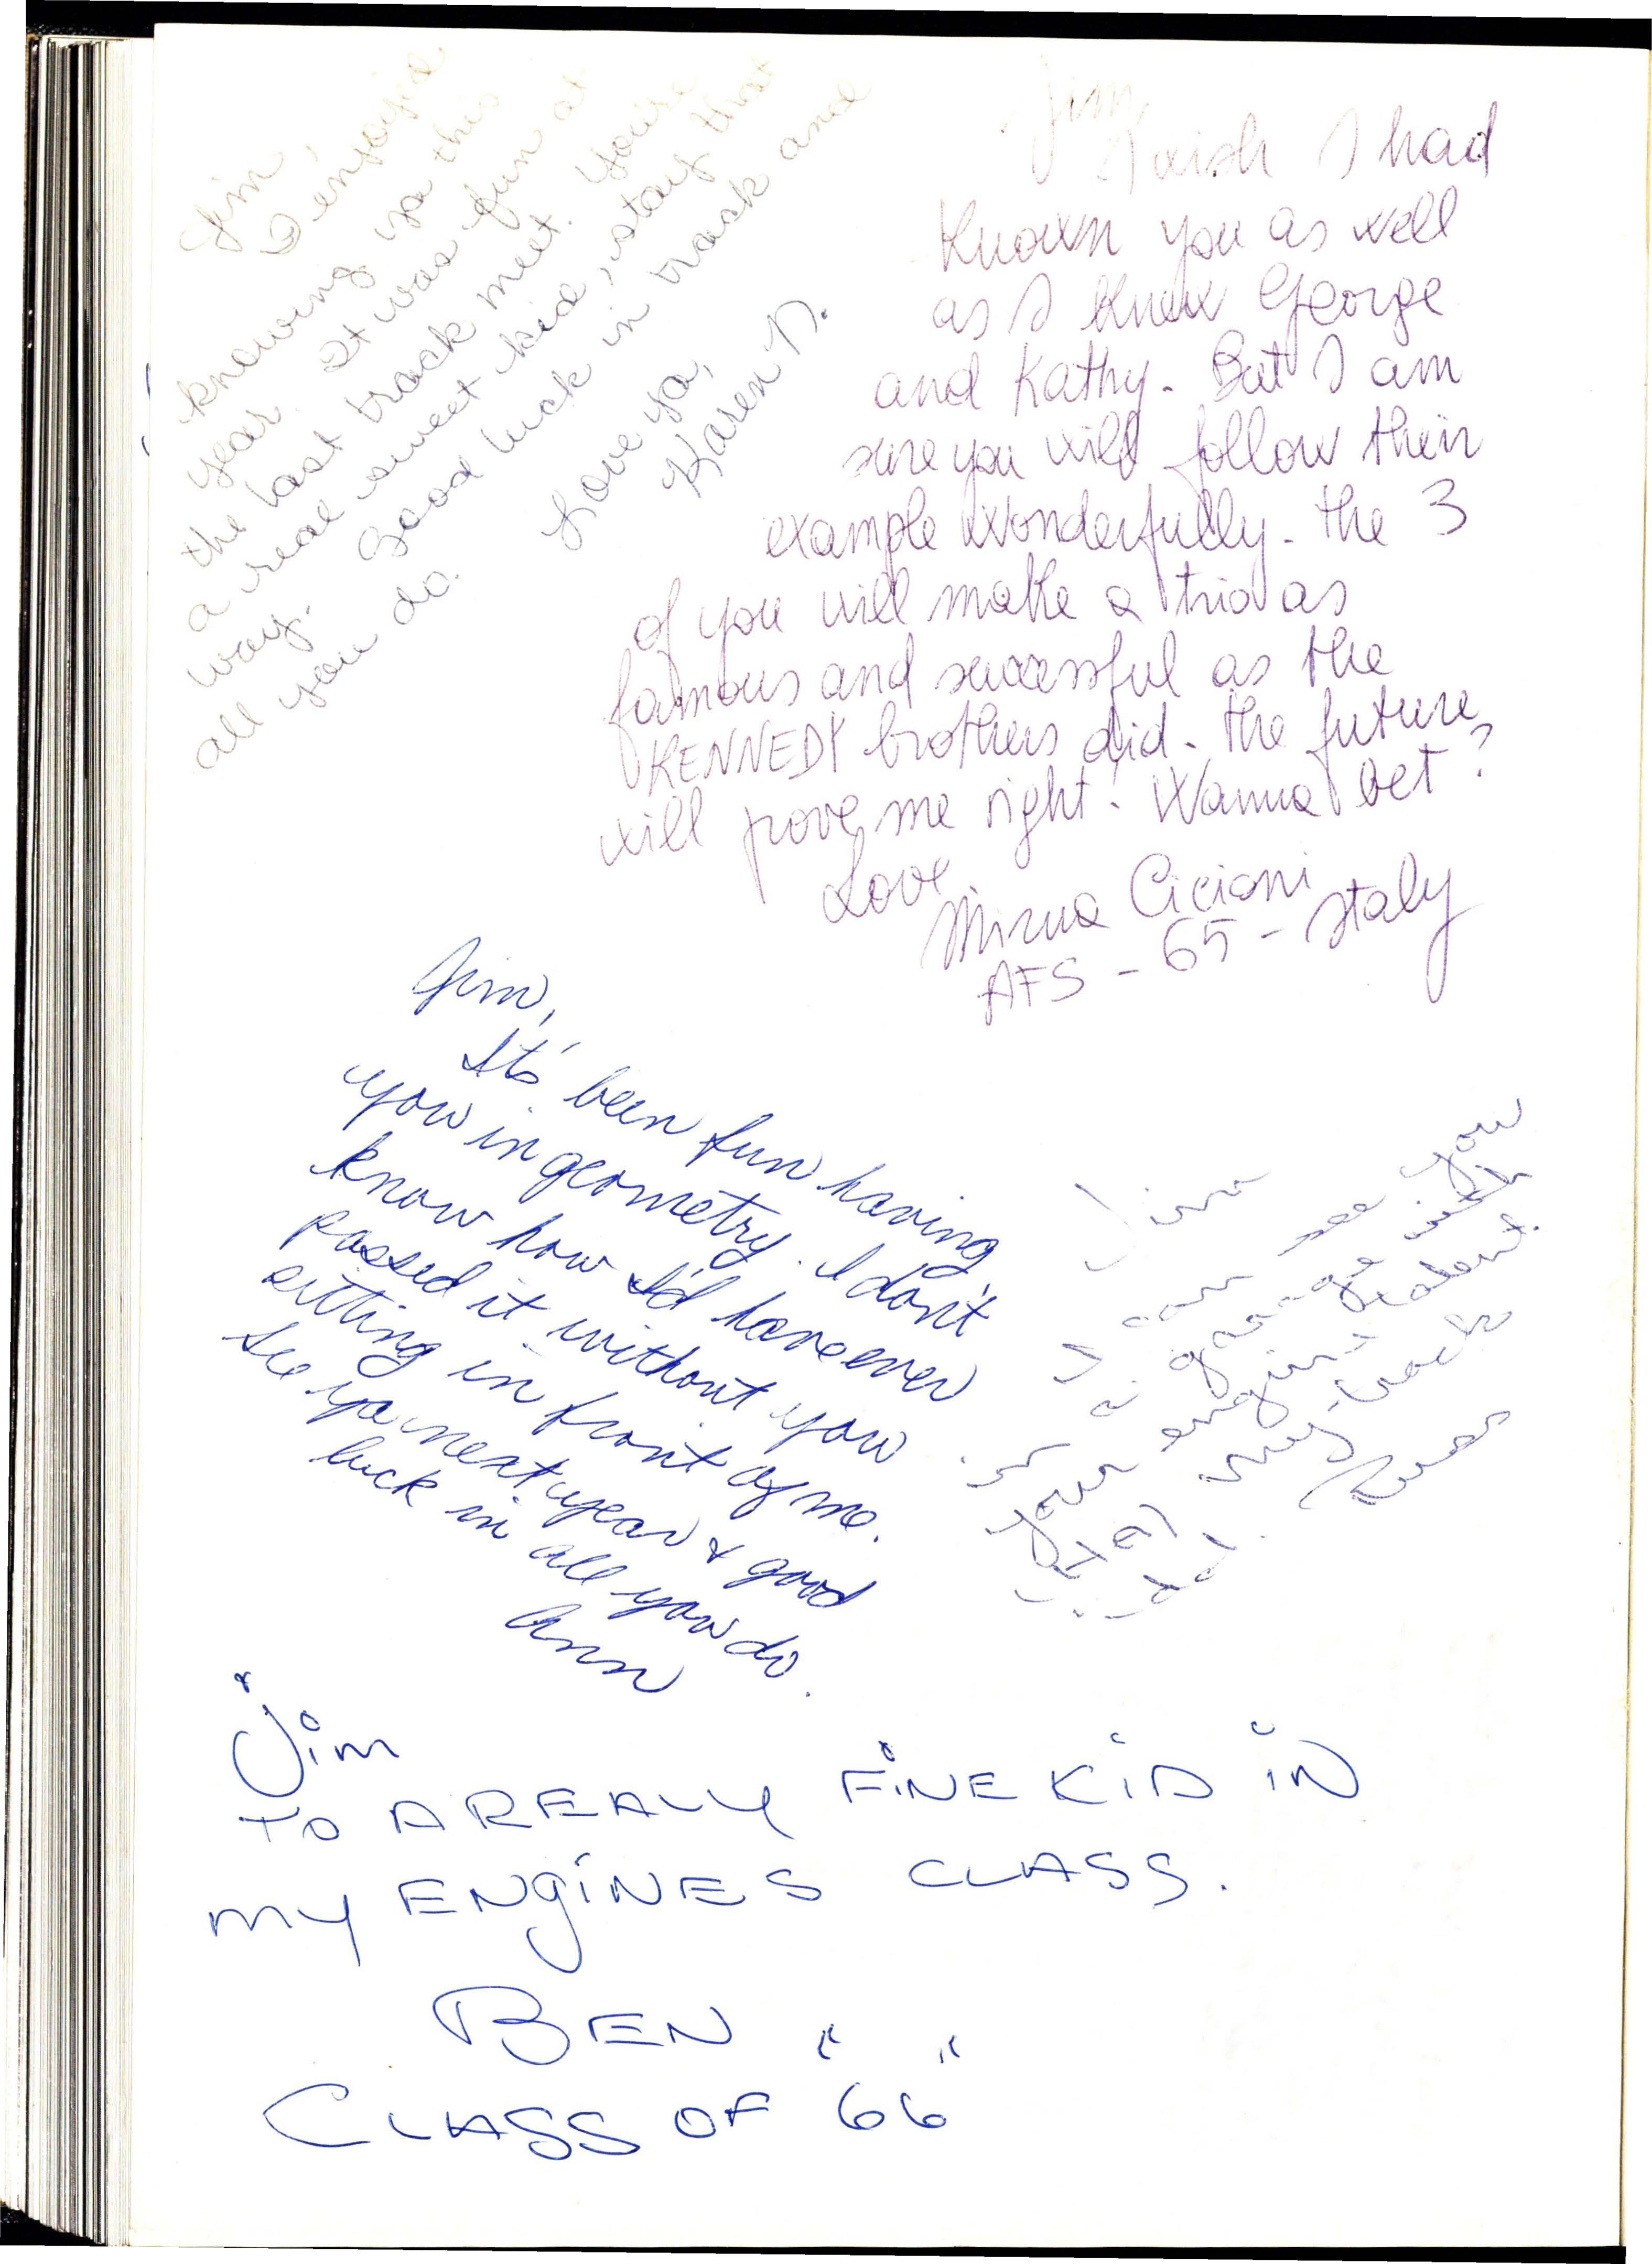 Jim,
I enjoyed
knowing ya this
year. It was fun at
the last track meet. You're
a real sweet kid, stay that
way. Good luck in track and
all you do.
Love ya,
Karen N.
Jim,
I wish I had
known you as well
as I knew George
and Kathy. But I am
sure you will follow their
example wonderfully. The 3
of you will make a trio as
famous and successful as the
KENNEDY brothers did. The future
will prove me right! Wanna bet?
Love,
Mirna Cicioni
AFS - 65 - Italy
Jim,
It's been fun having
you in geometry. I don't
know how I'd have ever
passed it without you
sitting in front of me.
See ya next year & good
luck in all you do.
Ann
Jim
I can see you
in a garage with
your engine talent.
Jim
TO A REALLY FINE KID IN
MY ENGINES CLASS.
BEN
CLASS OF "66"